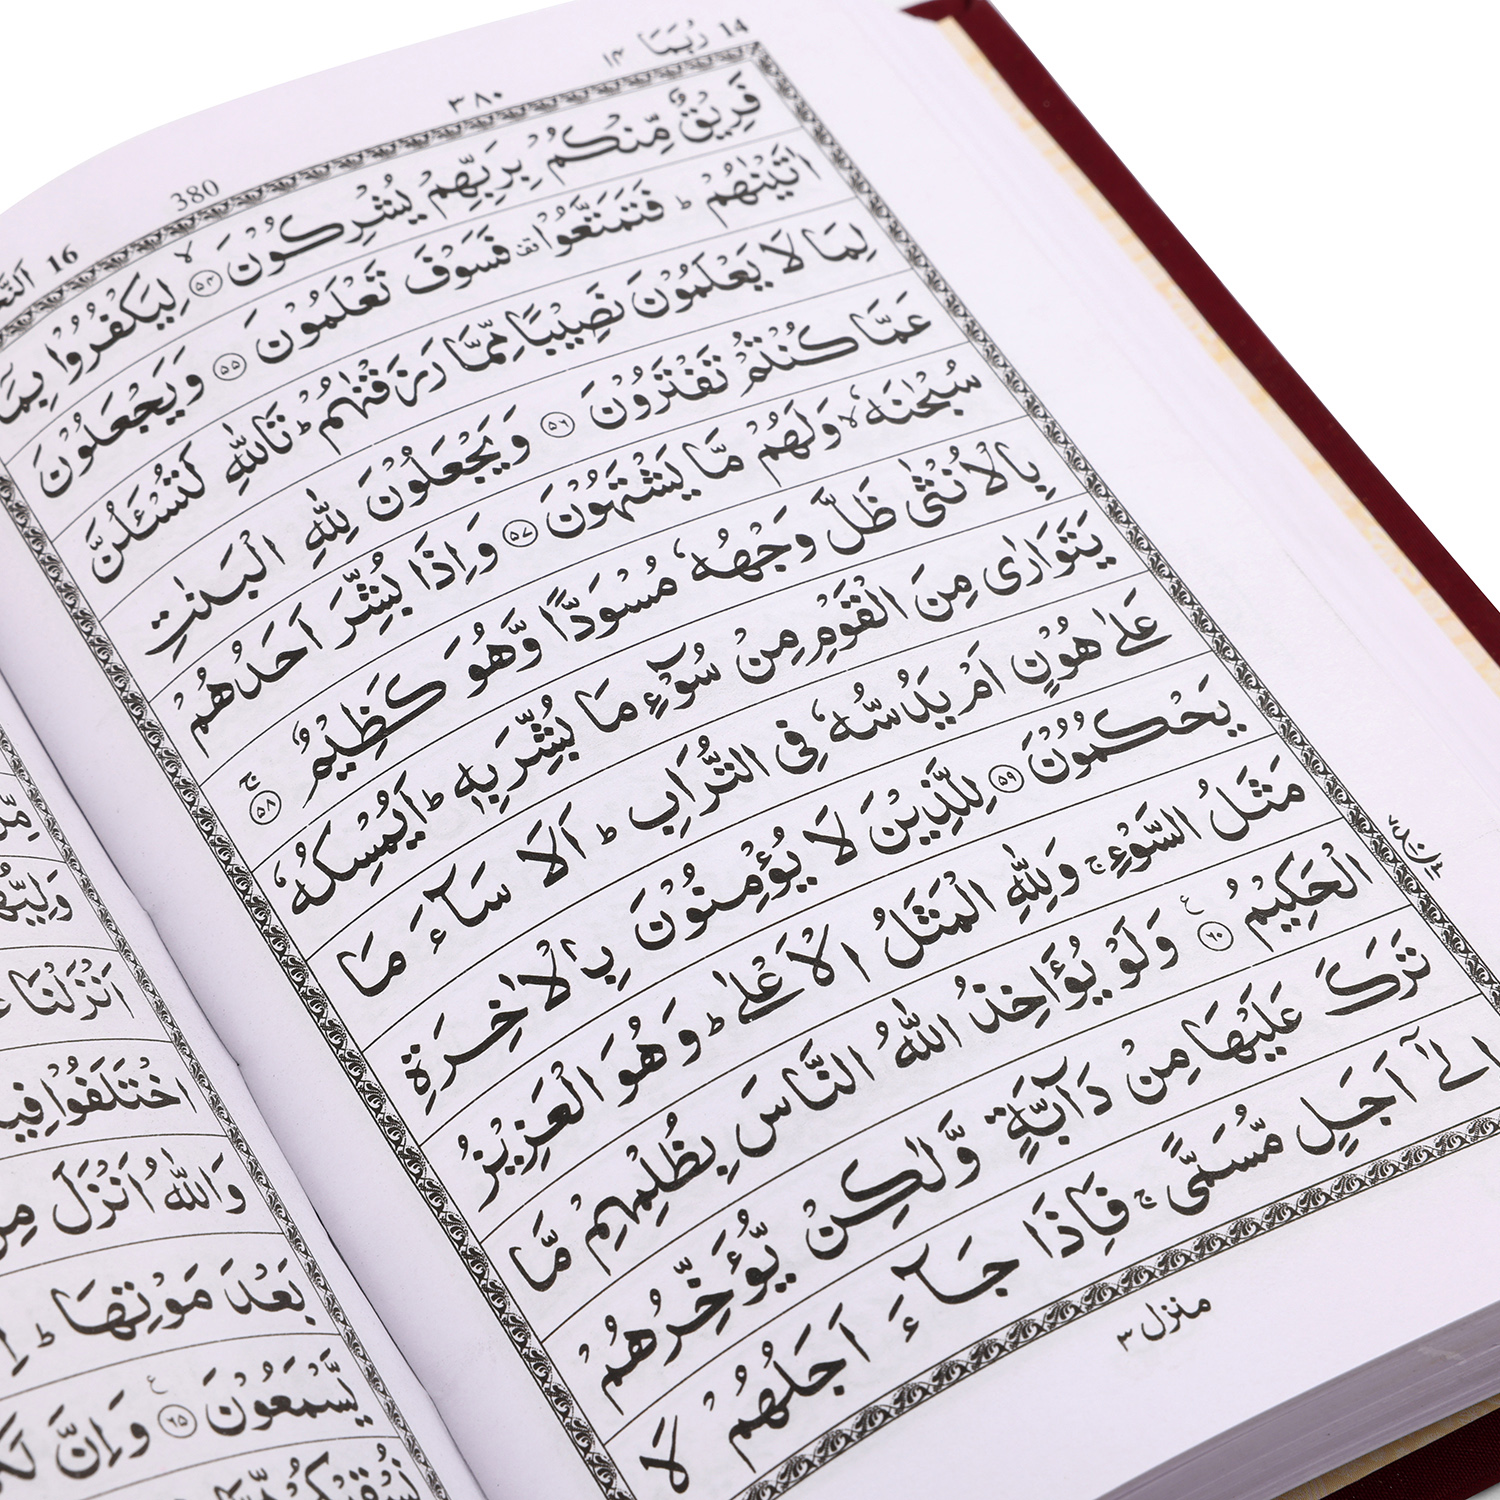 14 رُبَمَا ١٤
٣٨٠
380
16
فَرِيْقٌ مِّنْكُمْ بِرَبِّهِمْ يُشْرِكُوْنَ ﴿٥٤﴾ ۙ لِيَكْفُرُوْا بِمَاۤ
اٰتَيْنٰهُمْ ؕ فَتَمَتَّعُوْا فَسَوْفَ تَعْلَمُوْنَ ﴿٥٥﴾ وَيَجْعَلُوْنَ
لِمَا لَا يَعْلَمُوْنَ نَصِيْبًا مِّمَّا رَزَقْنٰهُمْ ؕ تَاللّٰهِ لَتُسْـَٔلُنَّ
عَمَّا كُنْتُمْ تَفْتَرُوْنَ ﴿٥٦﴾ وَيَجْعَلُوْنَ لِلّٰهِ الْبَنٰتِ
سُبْحٰنَهٗ ۙ وَلَهُمْ مَّا يَشْتَهُوْنَ ﴿٥٧﴾ وَاِذَا بُشِّرَ اَحَدُهُمْ
بِالْاُنْثٰى ظَلَّ وَجْهُهٗ مُسْوَدًّا وَّهُوَ كَظِيْمٌ ﴿٥٨﴾ ۚ
يَتَوَارٰى مِنَ الْقَوْمِ مِنْ سُوْٓءِ مَا بُشِّرَ بِهٖ ؕ اَيُمْسِكُهٗ
عَلٰى هُوْنٍ اَمْ يَدُسُّهٗ فِى التُّرَابِ ؕ اَلَا سَآءَ مَا
يَحْكُمُوْنَ ﴿٥٩﴾ لِلَّذِيْنَ لَا يُؤْمِنُوْنَ بِالْاٰخِرَةِ
مَثَلُ السَّوْءِ ۚ وَلِلّٰهِ الْمَثَلُ الْاَعْلٰى ؕ وَهُوَ الْعَزِيْزُ
الْحَكِيْمُ ﴿٦٠﴾ ع وَلَوْ يُؤَاخِذُ اللّٰهُ النَّاسَ بِظُلْمِهِمْ مَّا
تَرَكَ عَلَيْهَا مِنْ دَآبَّةٍ وَّلٰكِنْ يُّؤَخِّرُهُمْ
اِلٰٓى اَجَلٍ مُّسَمًّى ۚ فَاِذَا جَآءَ اَجَلُهُمْ لَا
منزل ٣
اَنْزَلْنَا
اخْتَلَفُوْا
وَاللّٰهُ اَنْزَلَ مِنَ
بَعْدَ مَوْتِهَا ؕ
يَّسْمَعُوْنَ ﴿٦٥﴾ ع وَاِنَّ